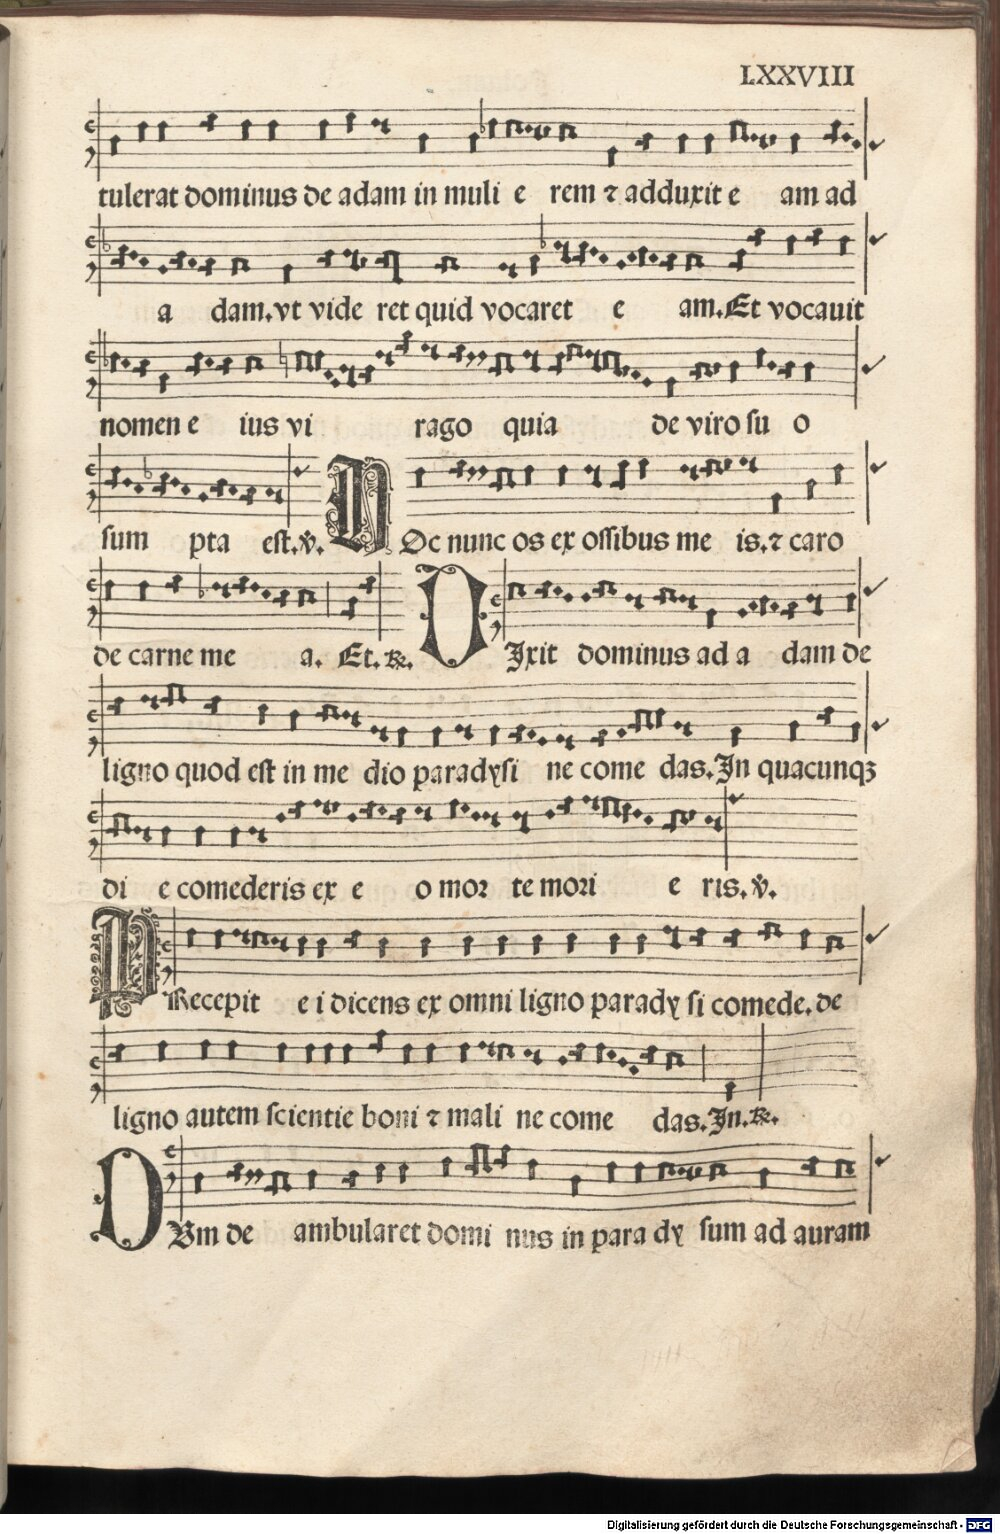 LXXVIII
tulerat dominus de adam in muli e rem ⁊ adduxit e am ad
a dam.vt vide ret quid vocaret e am.Et vocauit
nomen e ius vi rago quia de viro su o
sum pta est.℣. HOc nunc os ex ossibus me is.⁊ caro
de carne me a. Et.℞. DIxit dominus ad a dam de
ligno quod est in me dio paradysi ne come das.In quacunqꝫ
di e comederis ex e o moꝛ te moꝛi e ris.℣.
PRecepit e i dicens ex omni ligno parady si comede.de
ligno autem scientie boni ⁊ mali ne come das.In.℞.
DVm de ambularet domi nus in para dy sum ad auram
Digitalisierung gefördert durch die Deutsche Forschungsgemeinschaft - DFG